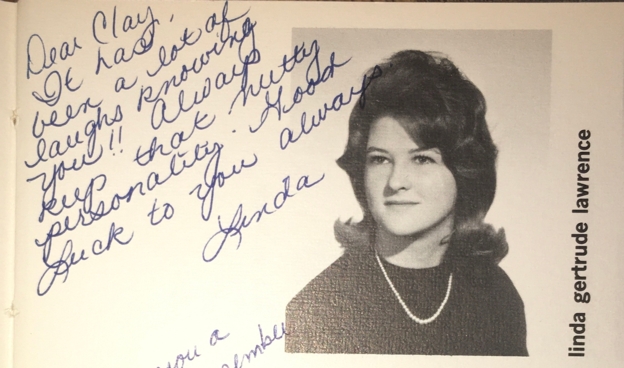 Dear Clay,
It has,
been a lot of
laughs knowing
you!! Always
keep that nutty
personality. Good
Luck to you always
Linda
you a
linda gertrude lawrence